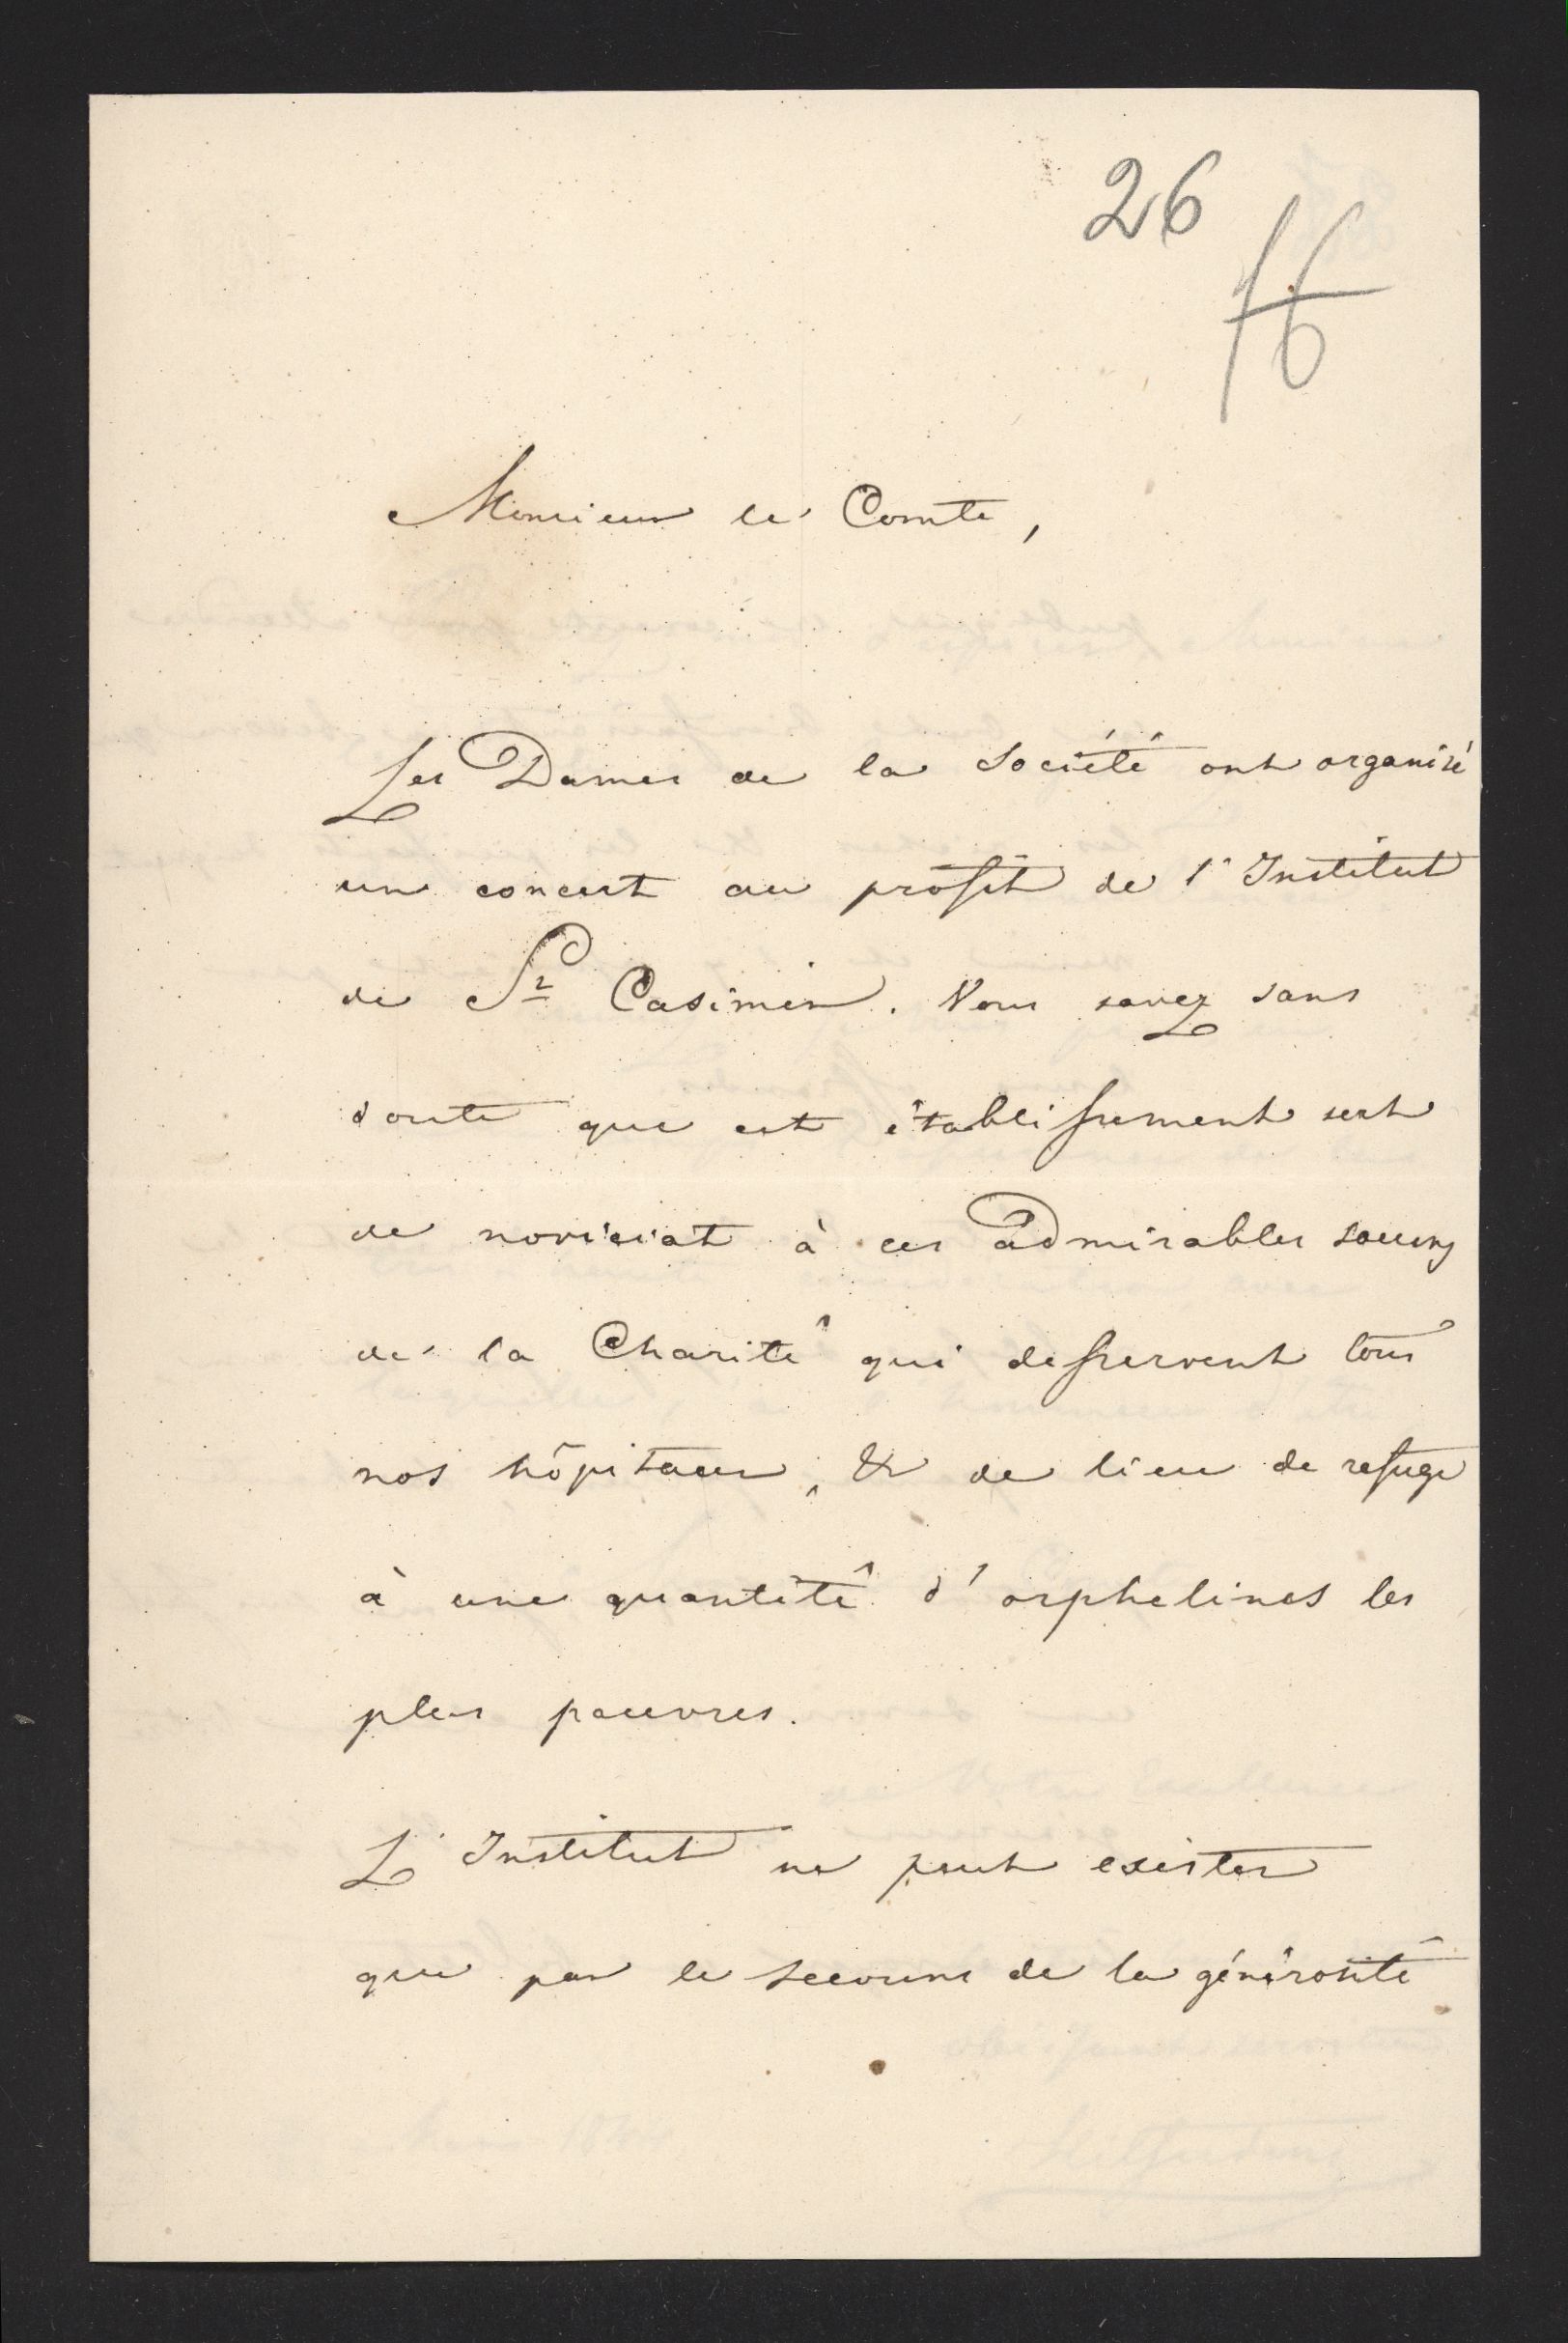 26
16
Monsieur le Comte,
Les Dames de la Société ont organisé
un concert au profit de l'Institut
de St Casimir. Vous savez sans
doute que cet établissement sert
de noviciat à ces admirables soeurs
de la Charité qui desservent tous
nos hôpitaux, & de lieu de refuge
à une quantité d'orphelines les
plus pauvres.
L'Institut ne peut exister
que par le secours de la générosité